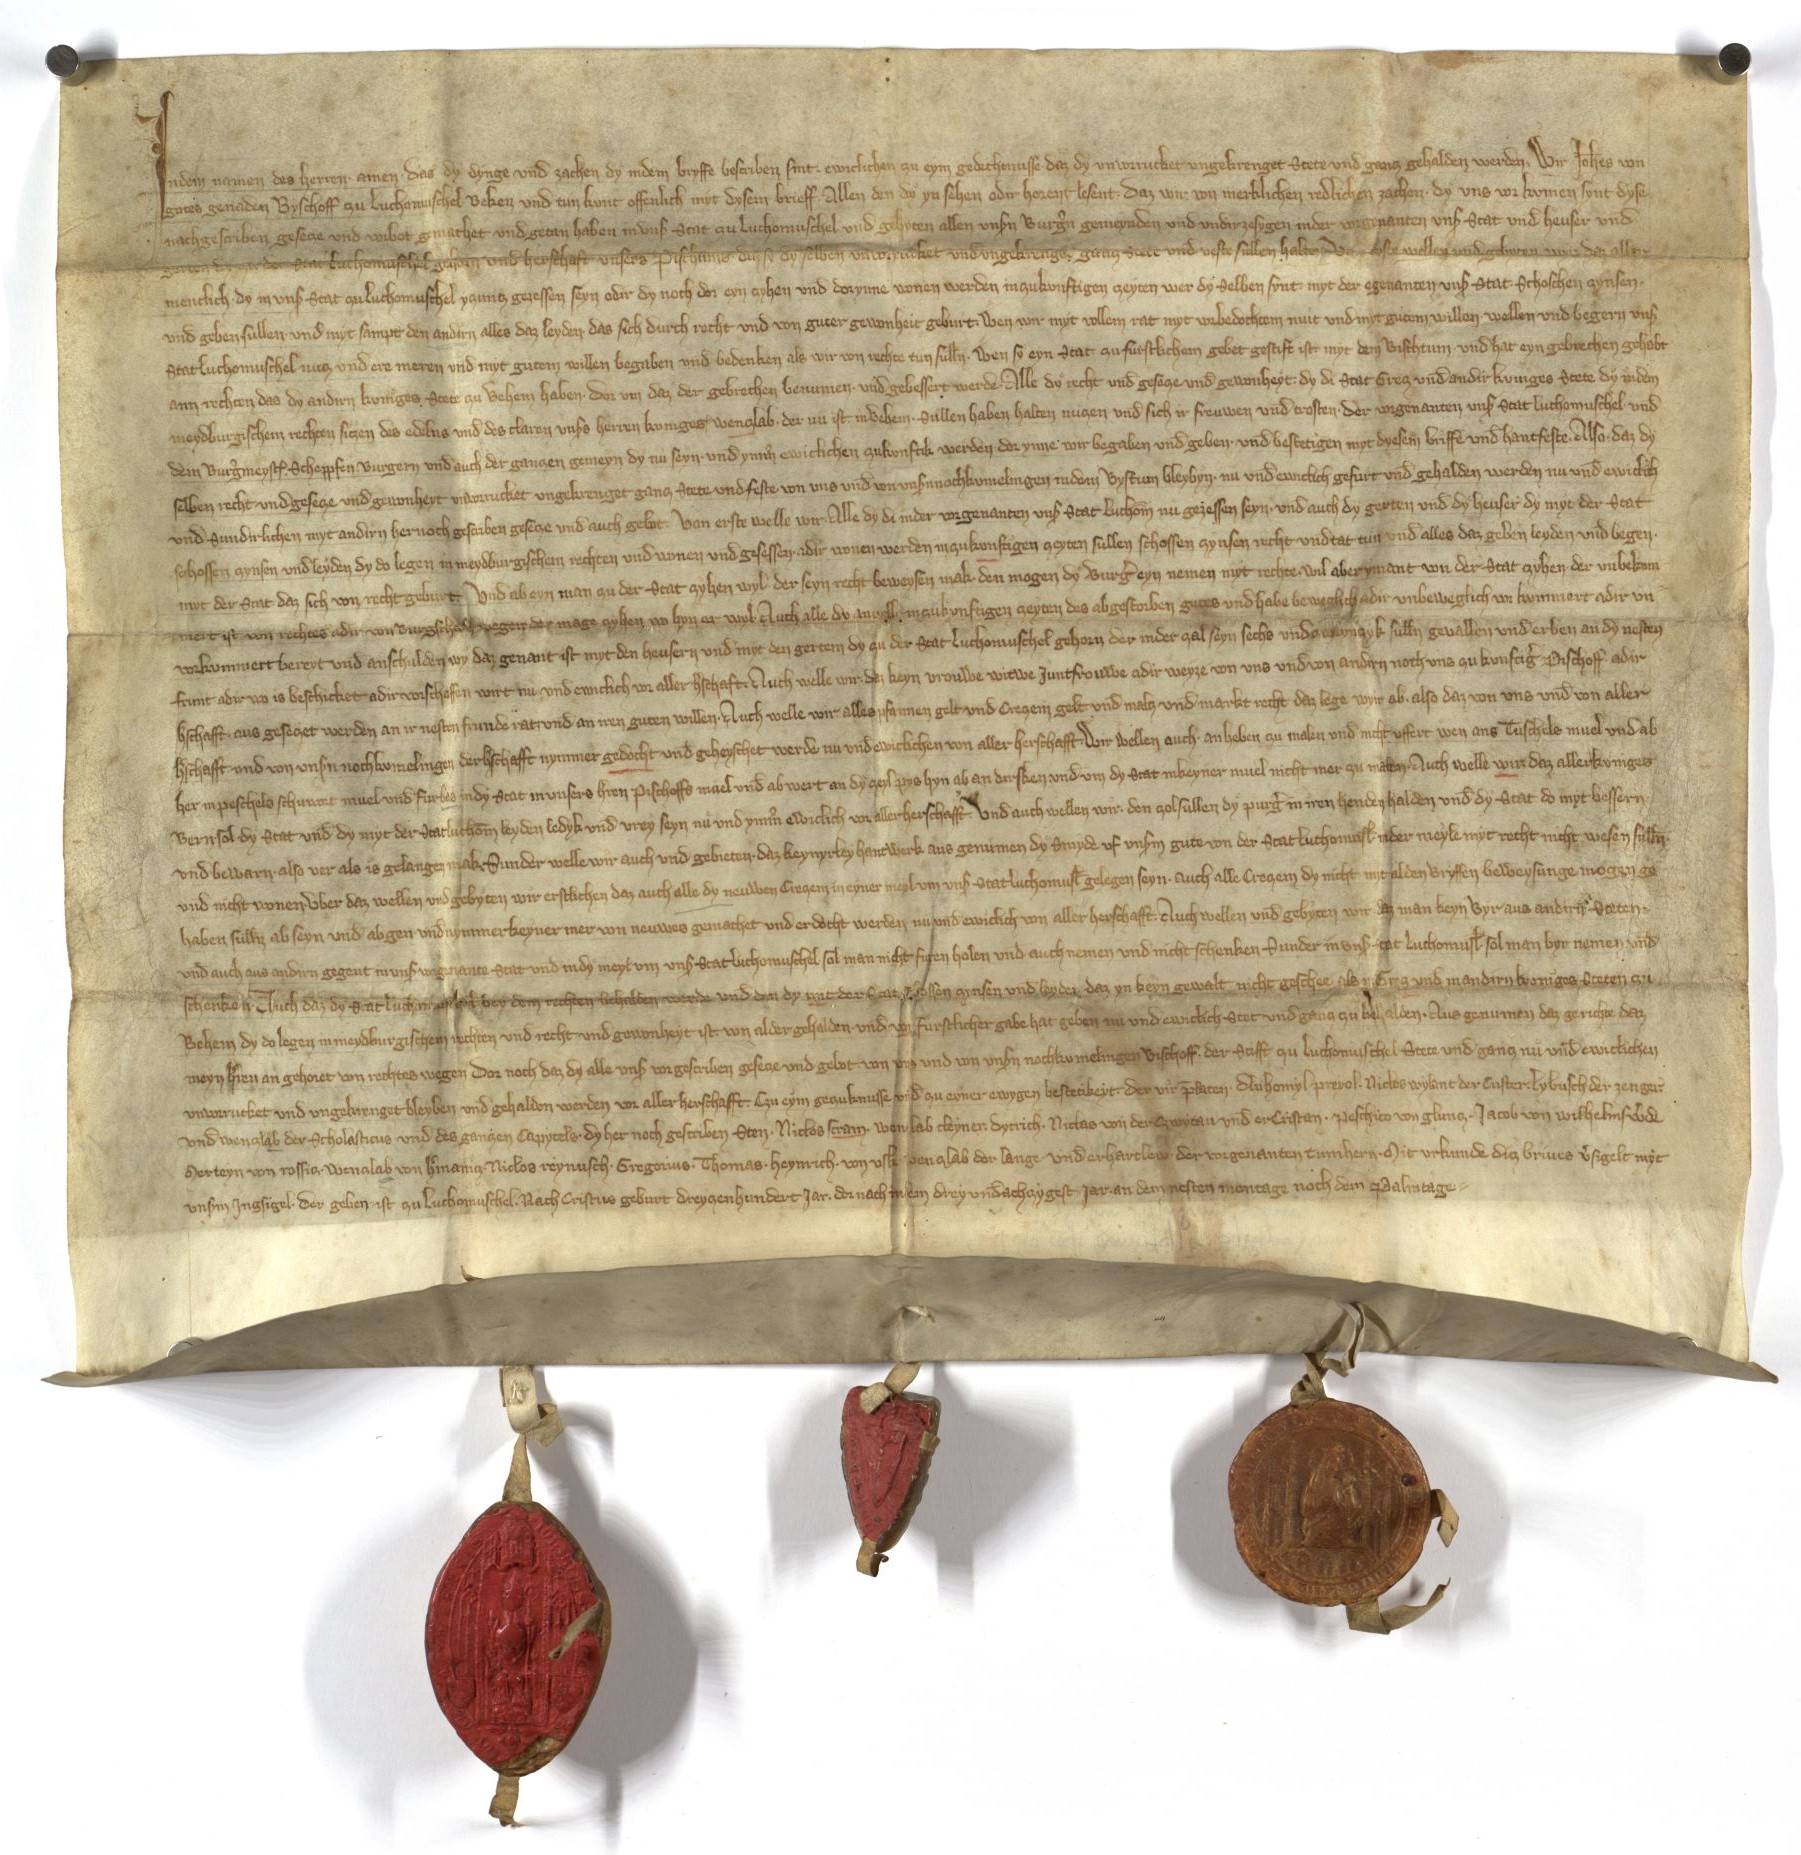 Indem namen des herren amen. Das dy dynge und zachen dy indem bryffe bescriben sint ewiclichen zu eym gedechtnisse daz dy unvorrucket ungekrenget Stete und gancz gehalden werden. Wir Johes von
gotes genaden Byschoff zu Luthomuschel Beken und tun kunt offenlich myt dysem brieff. Allen den dy yn sehen odir horent lesent. Daz wir von merklichen redlichen zachen dy uns vor komen synt dyse
nachgescriben gesecze und wibot gemachet und getan haben in unß Stat zu Luthomuschel und gebyten allen unßn Burgn gemeynden und undirzesygen inder vorgenanten unß Stat und heuser und
gerten dy zu der Stat Luthomuschel gehorn und herschaft unsers Pischtums daz sy dy selben unvorrucket und ungekrenget gancz Stete und veste sullen halden wellen und gebyten wir den allen
menclich dy in unß Stat zu Luthomuschel yczunt gezessen seyn odir dy noch dor eyn czyhen und dorynne wonen werden in zukunftigen zeyten wer dy Selben synt myt der egenanten unß Stat Schoschen czynsen
und geben sullen und myt sampt den andirn alles daz leyden das sich durch recht und von guter gewonheit geburt. Wen wir myt vollem rat myt vorbedochtem mut und myt gutem willen wellen und begern unß
Stat Luthomuschel nucz und ere meren und myt gutem willen begaben und bedenken als wir von rechte tun sulln. Wen sy eyn Stat zu furstlichem gebet gestift ist myt dem Bischtum und hat eyn gebrechen gehabt
ann rechten das dy andirn kuniges Stete zu Behem haben. Dor um daz der gebrechen benumen und gebessert werde. Alle dy recht und gesecze und gewonheyt dy di Stat Grecz und andir kuniges Stete dy indem
meydburgischem rechten siczen des edilns und des claren unßs herren kuniges wenczlab der nu ist in Behem. Sullen haben halten nuczen und sich ir freuwen und trosten. Der vorgenanten unß Stat Luthomuschel und
dem Burgmeystr Scheppfen Burgern und auch der ganczen gemeyn dy nu seyn und ymmr ewiclichen zukunftik werden dor ynne wir begaben und geben und bestetigen myt dyesem briffe und hantfeste. Also daz dy
selben recht und gesecze und gewonheyt unvorrucket ungekrenget gancz Stete und feste von uns und von unßn nochkumelingen indem Bystum bleybyn nu und ewiclich gefurt und gehalden werden nu und ewiclich
und Sundirlichen myt andirn hernoch gescriben gesecze und auch gebot. Von erste welle wir Alle dy di inder vorgenanten unß Stat Luthom nu gezessen seyn und auch dy gerten und dy heuser dy myt der Stat
schossen czynsen und leyden dy do legen in meydburgischem rechten und wonen und gesessen adir wonen werden in zukunftigen zeyten sullen schossen czynsen recht und tat tun und alles daz geben leyden und begen
myt der Stat daz sich von recht geburt. Und ab eyn man zu der Stat czyhen wyl der seyn recht beweysen mak den mogen dy Burgr eyn nemen myt rechte. Wil aber ymant von der Stat czyhen der unbekum
mert ist von rechtes adir von Burgschaft wegen der mage czyhen wo hyn er wyl. Auch alle dy in zukunftigen zeyten des abgestorben gutes und habe beweglich adir unbeweglich vor kummert adir un
vorkummert bereyt und anschulden wy daz genant ist myt den heusern und myt den gertem dy zu der Stat Luthomuschel gehorn der inder zal seyn sechs und czwenczyk sulln gevallen und erben an dy nesten
frunt adir wo is beschicket adir vorschessen wirt nu und ewiclich vor aller hschaft. Auch welle wir daz keyn vrouwe witwe Juntfrouwe adir weyze von uns und von andirn noch uns zu kunftigr Bischoff adir
hschafft aus geseczet werden an ir nesten frunde rat und an iren guten willen. Auch welle wir alles pfannen gelt und Creczem gelt und malcz und markt recht daz lege wyr ab also daz von uns und von aller
hschafft und von unßn nochkumelingen der hschafft nymmer gedocht und geheyschet werde nu und ewiclichen von aller herschafft. Wir wellen auch an heben zu malen und nicht vffert wen ans Tuschels muel und ab
her in peschels schuurt muel und furbes indy Stat in unsers hren Pischoffs muel und abwert an dy hyn ab an dirsken und um dy Stat in keyner muel nicht mer zu malen. Auch welle wir daz aller kuniges
Bern sol dy Stat und dy myt der Stat luthom leyden ledyk und vrey seyn nu und ymmr ewiclich vor aller herschafft. Und auch wellen wir den zol sullen dy purgr in iren henden halden und dy Stat do myt bessern
und bewarn also ver als is gelangen mak. Sunder welle wir auch und gebieten daz keynyrley hantwerk aus genumen dy Smyde uf unßm gute von der Stat luthomusl inder meyle myt recht nicht wesen sulln
und nicht wonen. Uber daz wellen und gebyten wir erstlichen daz auch alle dy neuwen Creczem in eyner meyl um unß Stat luthomusl gelegen seyn. Auch alle Creczem dy nicht mit alden Bryffen beweysunge mogen ge
haben sulln ab seyn und ab gen und nymmer keyner mer von neuwes gemachet und erdocht werden nu und ewiclich von aller herschafft. Auch wellen und gebyten wir daz man keyn Byr aus andirn Steten
und auch aus andirn gegent in unß vorgenante Stat und indy meyl um unß Stat Luthomuschel sol man nicht furen holen und auch nemen und nicht schenken Sunder in unß Stat luthomusl sol man byr nemen und
schenken. Auch daz dy Stat bey dem rechten behalden werde und den dy mit der Stat schossen czynsen und leyden daz yn keyn gewalt nicht geschee als zu Grecz und in andirn kuniges Steten zu
Behem dy do legen in meydburgischem rechten und recht und gewonheyt ist von alder gehalden und von furstlicher gabe hat geben nu und ewiclich Stet und gancz zu behalden. Aus genumen daz gerichte daz
meyn hren an gehoret von rechtes wegen. Dor noch daz dy alle unß vorgescriben gesecze und gebot von uns und von unßn nochkumelingen Bischoff der Stifft zu luthomuschel Stete und gancz nu und ewiclichen
unvorrucket und ungekrenget bleyben und gehalden werden vor aller herschafft. Czu eym geczuknusse und zu eyner ewygen bestetikeyt. Der wir Dluhomyl prevol. Niclos wylant der Custer. lybusch der zenger
und wenczlab der Scholasticus und des ganczen Capytels dy her noch gescriben Sten. Niclos scram. wenczlab cleyner. dytrich. Niclas von der Czwytau und er Cristan. Peschico von glucz. Jacob von wilhelms
Merteyn von rossicz. Wenczlab von Niclos reynusch. Gregorius. Thomas. Heynrich von usk. wenczlab der lange und er hartlew der vorgenanten tumhern. Mit urkunde dicz brives vsigelt myt
unßm Ingsigel. Der geben ist zu Luthomuschel. Nach Cristus geburt dreyczenhundert Jar. dor nach in dem drey und achczygest Jar an dem nesten montage noch dem Palmtage